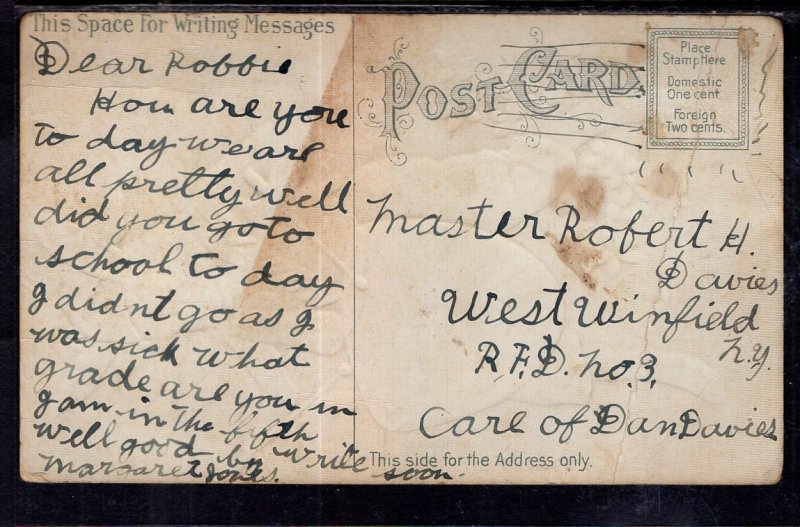 This Space For Writing Messages
Dear Robbie
How are you
to day we are
all pretty well
did you go to
school to day
I didnt go as I
was sick what
grade are you in
I am in the fifth
well good by write soon.
Margaret Jones.
POST CARD
Place
Stamp Here
Domestic
One cent.
Foreign
Two cents.
Master Robert H.
Davies
West Winfield
N.Y.
R.F.D. No. 3.
Care of Dan Davies
This side for the Address only.